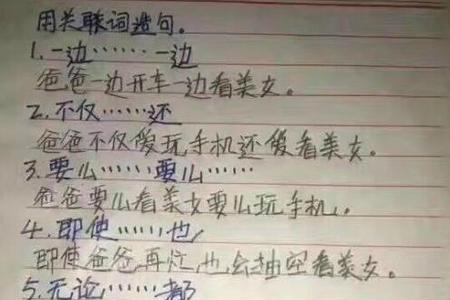 用关联词造句。
1.一边……一边
爸爸一边开车一边看美女。
2.不仅……还
爸爸不仅爱玩手机还爱看美女。
3.要么……要么……
爸爸要么看美女要么玩手机。
4.即使……也
即使爸爸再忙,也会抽空看美女。
5.无论……都